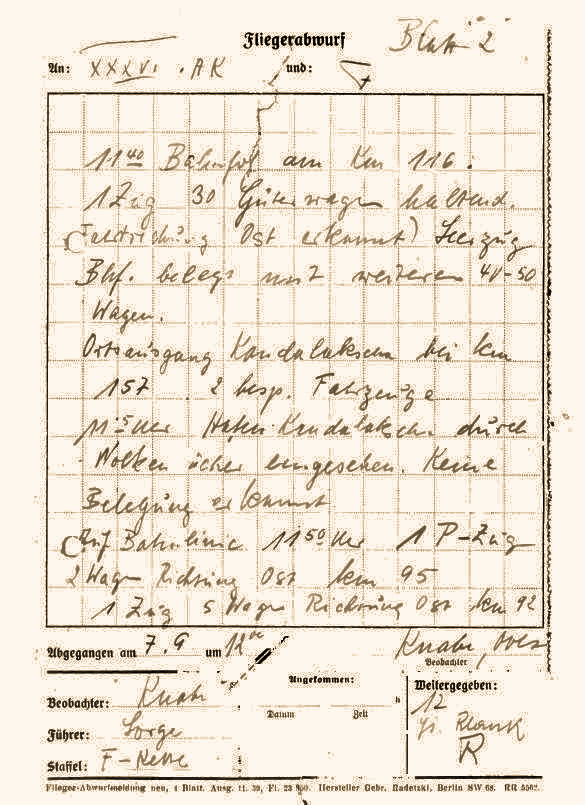 Fliegerabwurf Blatt 2
An: XXXVI. AK und:
11⁴⁰ Bahnhof am Km 116:
1 Zug 30 Güterwagen haltend.
(Fahrtrichtung Ost erkannt) Leerzug
Bhf. belegt mit weiteren 40-50
Wagen.
Ortsausgang Kandalakscha bei km
157. 2 besp. Fahrzeuge
Hafen Kandalakscha durch
Wolken eingesehen. Keine
Belegung erkannt
Auf Bahnlinie 11⁵⁰ Uhr 1 P-Zug
2 Wagen Richtung Ost km 95
1 Zug 5 Wagen Richtung Ost km 92
Abgegangen am 7.9 um 12
Knabe,
Beobachter
Angekommen:
Datum Zeit h
Weitergegeben:
12
Beobachter: Knabe
Führer: Sorge
Staffel: F-Kette
R
Flieger-Abwurfmeldung neu, 1 Blatt. Ausg. 11. 39, Fl. 23 Hersteller Gebr. Radetzki, Berlin SW 68.